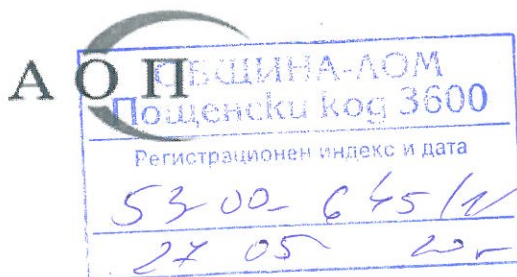 АОП
ОБЩИНА-ЛОМ
Пощенски код 3600
Регистрационен индекс и дата
53-00-645/1/
27 05 20г